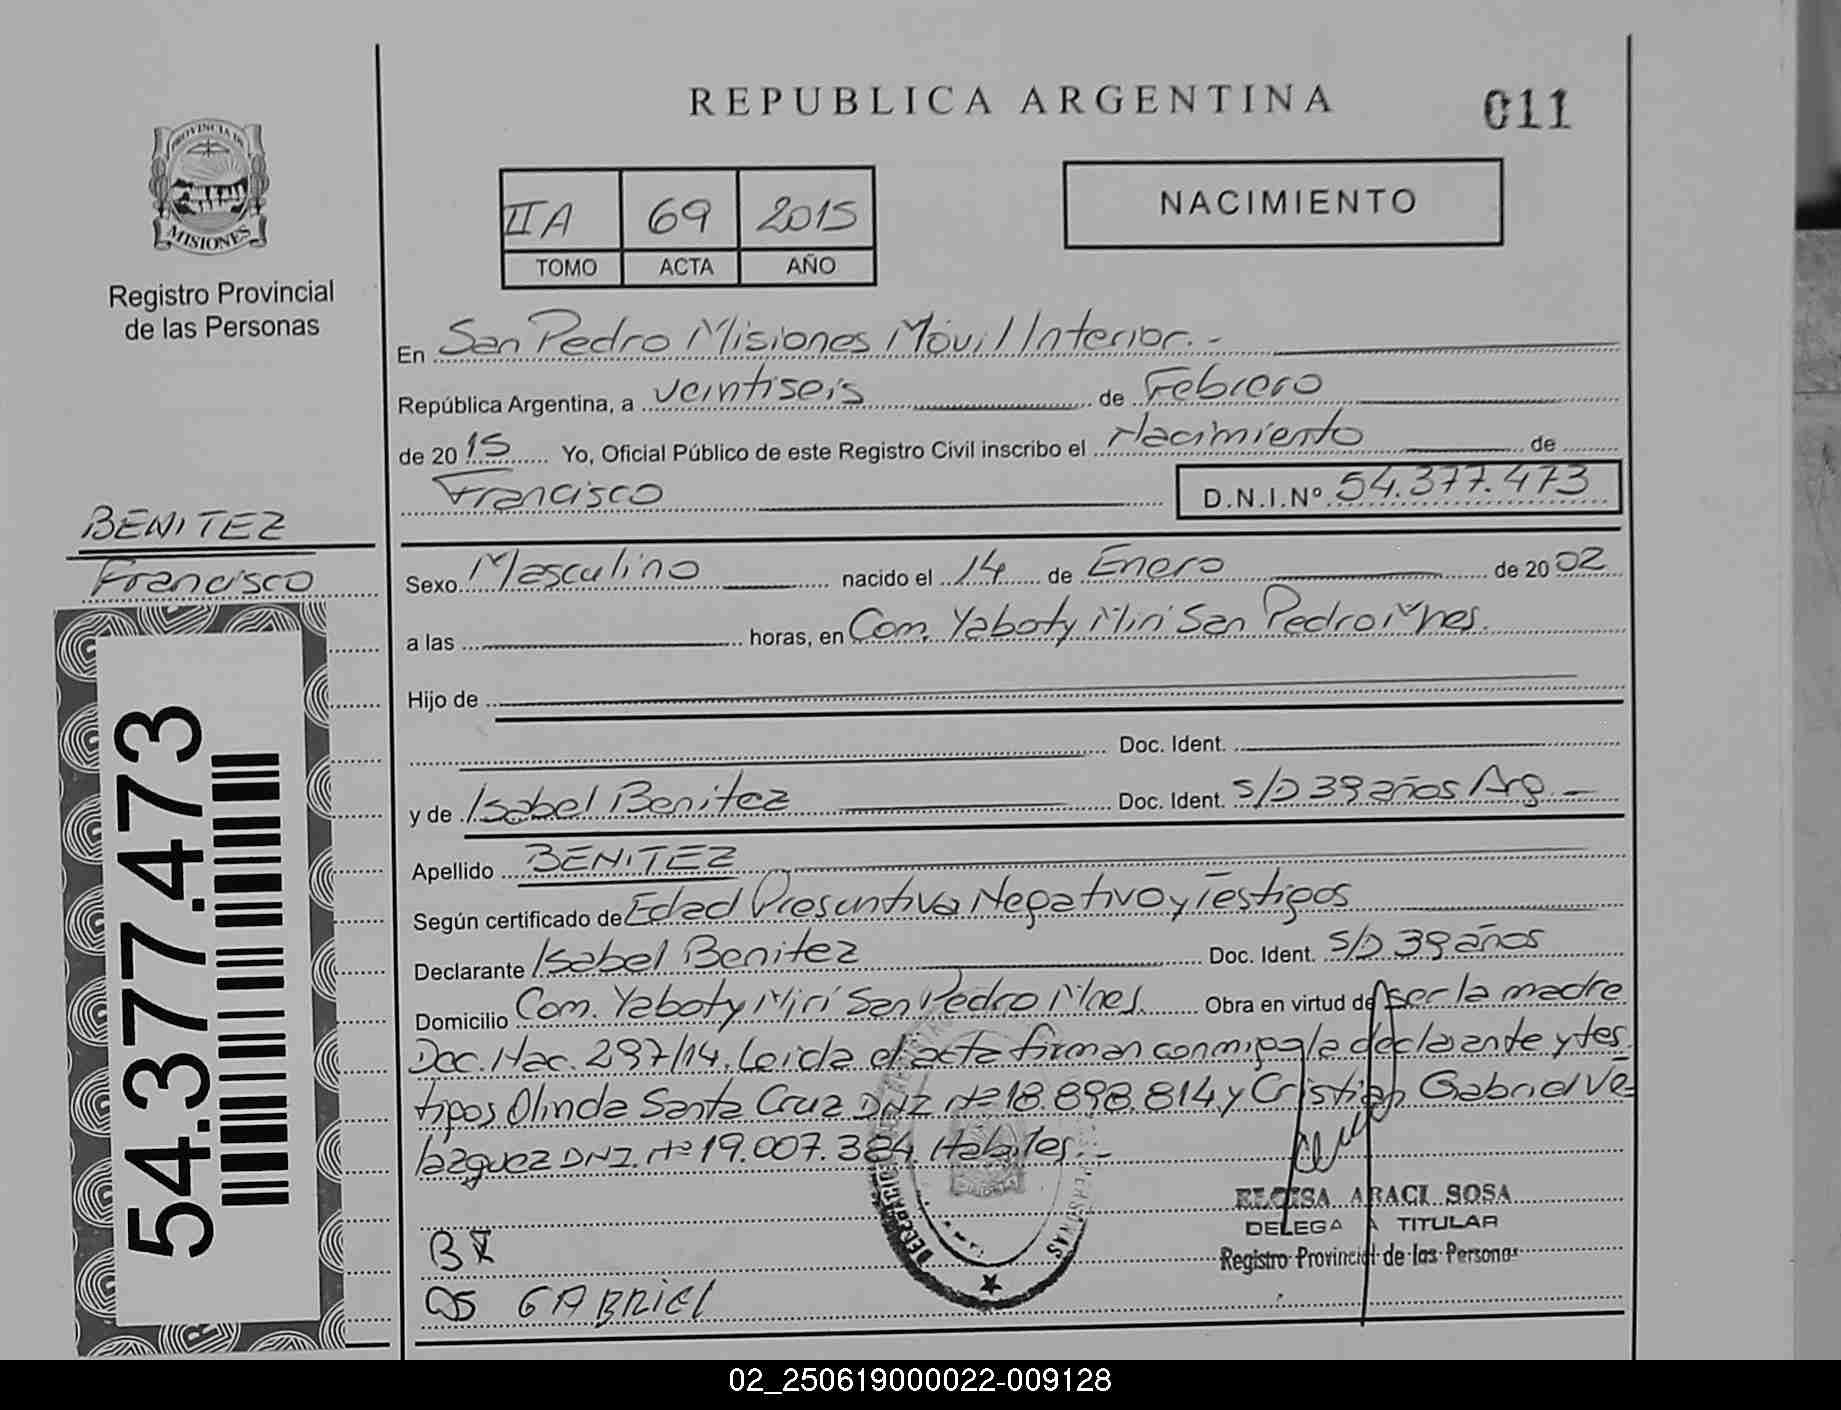 REPUBLICA ARGENTINA
011
PROVINCIA DE
MISIONES
Registro Provincial
de las Personas
IIA 69 2015
TOMO ACTA AÑO
NACIMIENTO
En San Pedro Misiones Móvil Interior.-
República Argentina, a veintiseis de Febrero
de 2015 Yo, Oficial Público de este Registro Civil inscribo el Nacimiento de
Francisco D.N.I.Nº 54.377.473
BENITEZ
Francisco
54.377.473
Sexo Masculino nacido el 14 de Enero de 2002
a las horas, en Com. Yaboty Miri San Pedro Mnes.
Hijo de
Doc. Ident.
y de Isabel Benitez Doc. Ident. S/D 39 años Arg.-
Apellido BENITEZ
Según certificado de Edad Presuntiva Negativo y Testigos
Declarante Isabel Benitez Doc. Ident. S/D 39 años
Domicilio Com. Yaboty Miri San Pedro Mnes. Obra en virtud de ser la madre
Doc. Nac. 297/14. Leida el acta firman conmigo la declarante y tes
tigos Olinda Santa Cruz DNI Nº 18.898.814 y Cristian Gabriel Ve-
lazquez DNI. Nº 19.007.384 Habiles.-
ELOISA ARACI SOSA
DELEGA A TITULAR
Registro Provincial de las Personas
B
OS GABRIEL
02_250619000022-009128